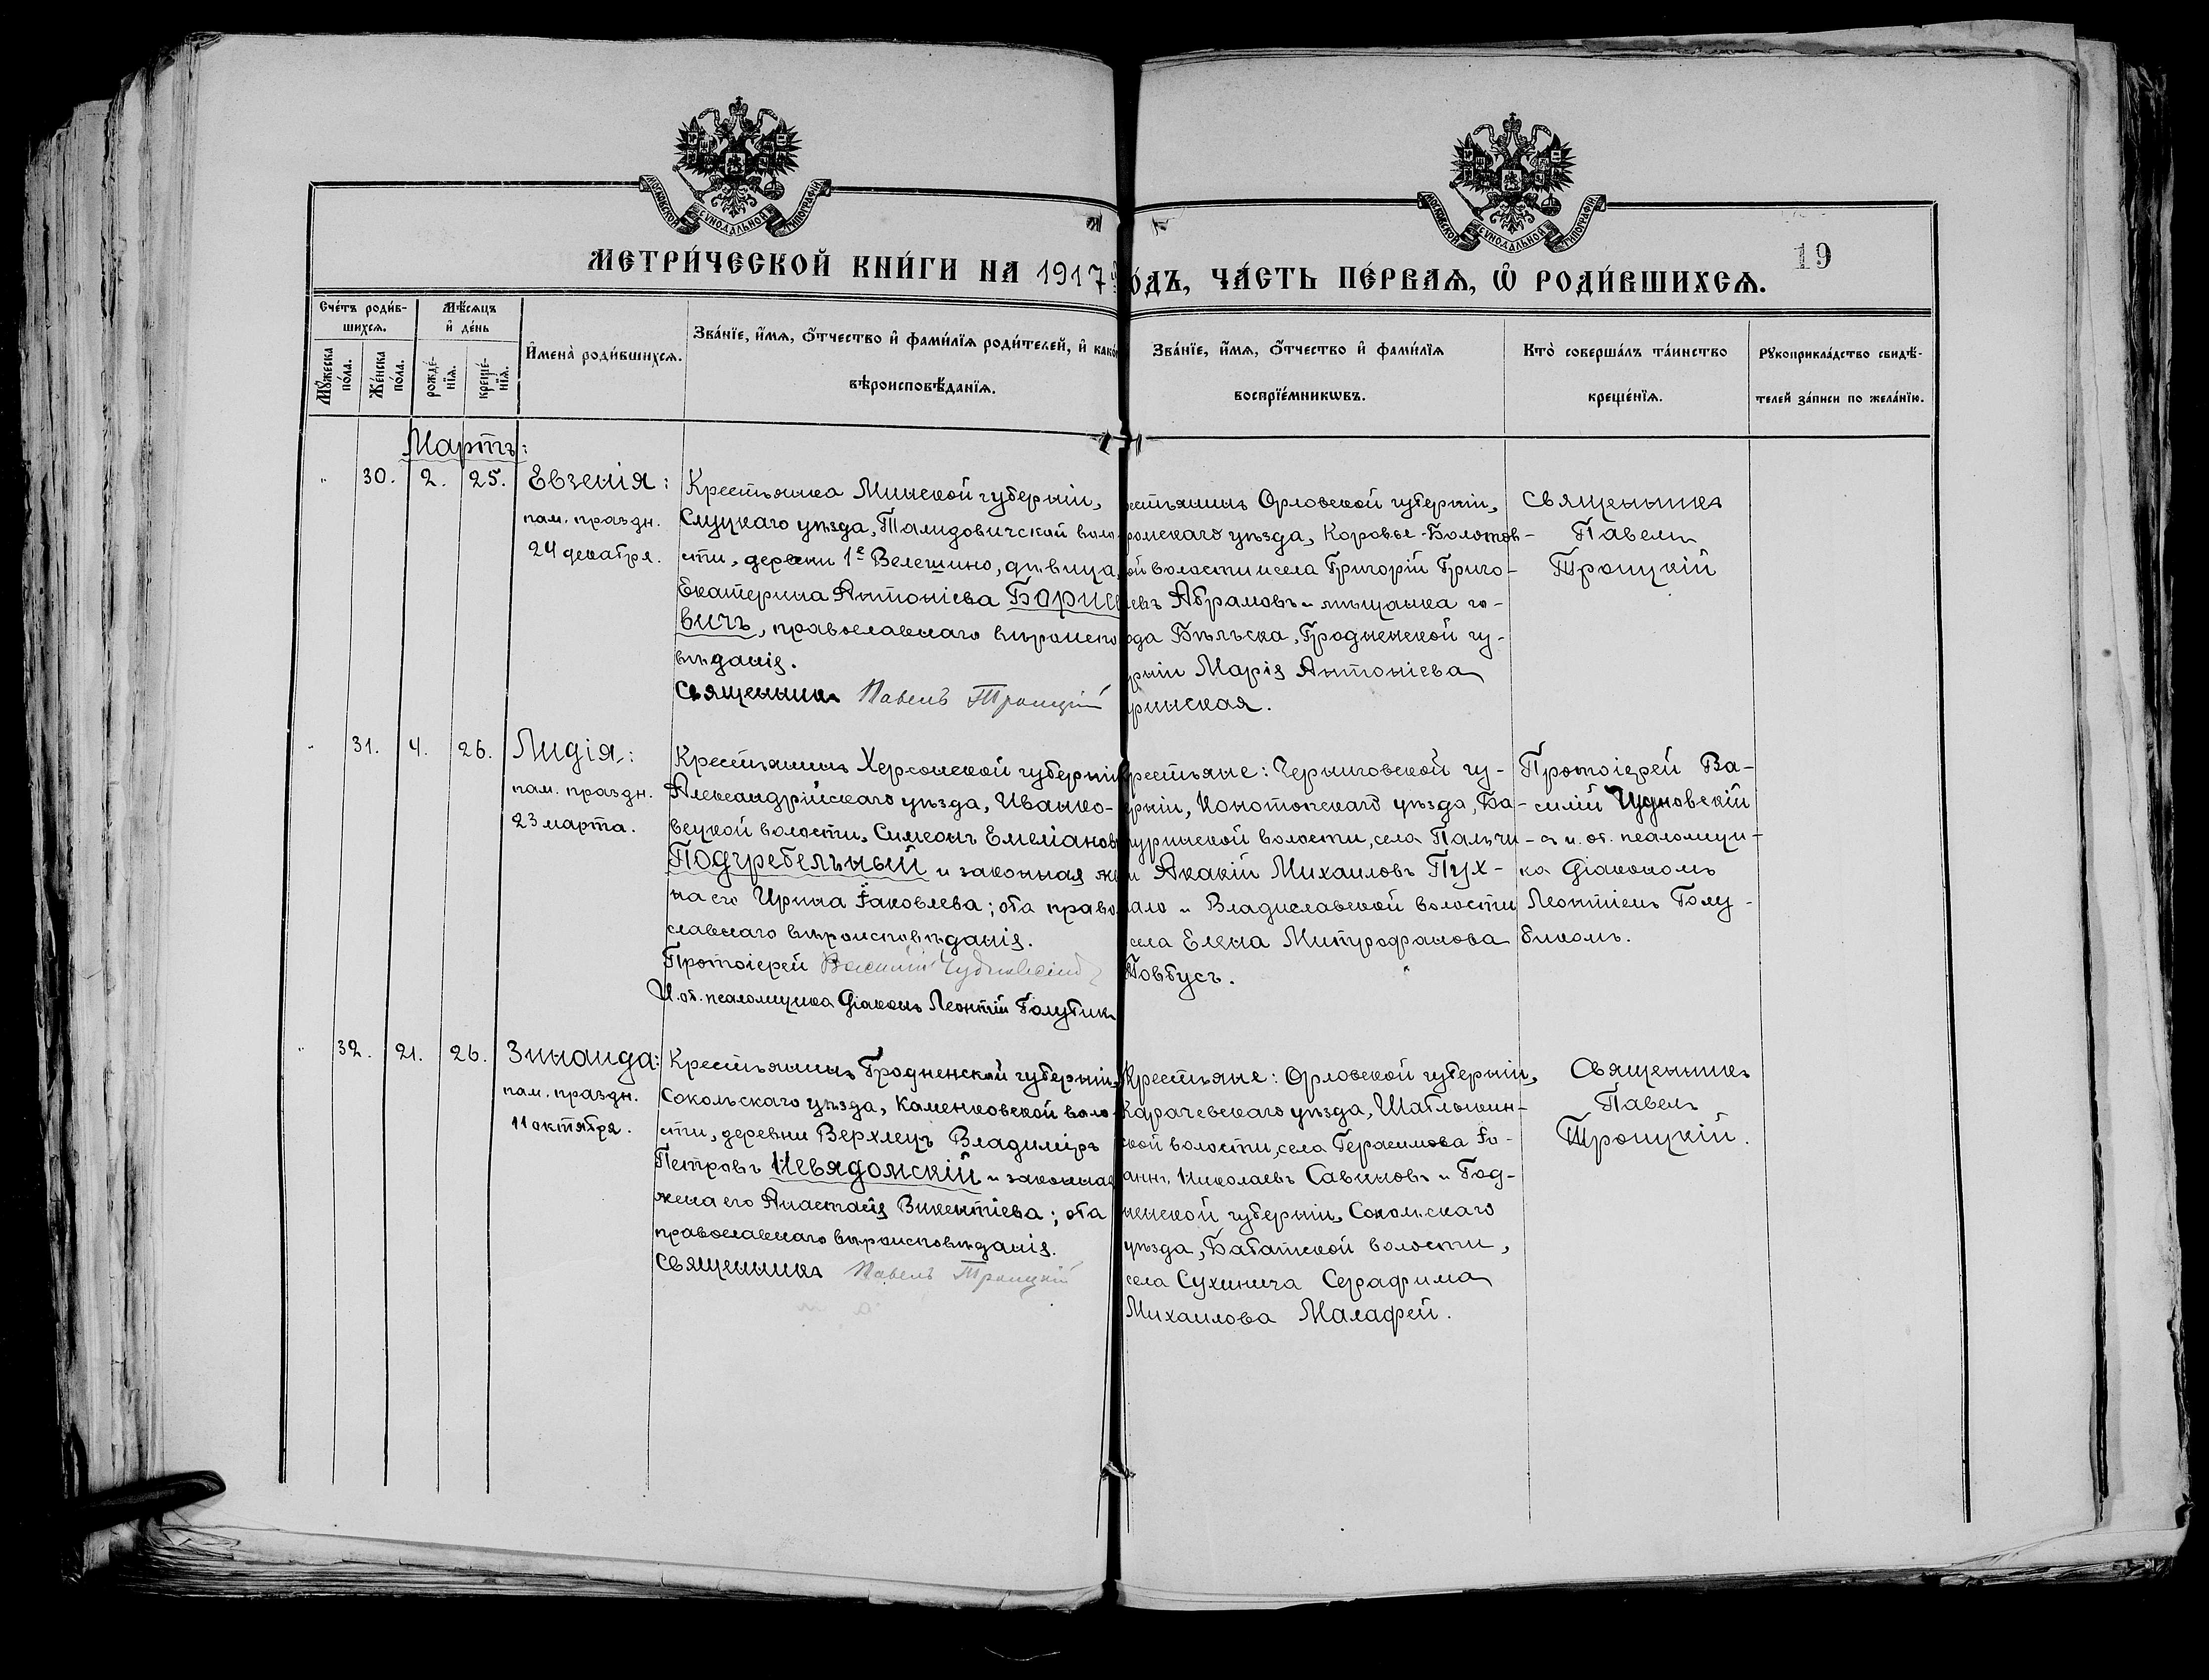 МОСКОВСКОЙ СѴНОДАЛЬНОЙ ТИПОГРАФІИ
МОСКОВСКОЙ СѴНОДАЛЬНОЙ ТИПОГРАФІИ
19
МЕТРИ́ЧЕСКОЙ КНИ́ГИ НА 1917 ГО́ДЪ, ЧА́СТЬ ПЕ́РВАѦ, Ѡ҆ РОДИ́ВШИХСѦ.
Сче́тъ роди́в-
шихсѧ.
Мꙋ́жеска
по́ла.
Же́нска
по́ла.
Мѣ́сѧцъ
и҆ де́нь
рожде́-
нїѧ.
креще́-
нїѧ.
И҆мена̀ роди́вшихсѧ.
Зва́нїе, и҆́мѧ, ѻ҆́тчество и҆ фами́лїѧ роди́телей, и҆ како́
вѣроисповѣ́данїѧ.
Зва́нїе, и҆́мѧ, ѻ҆́тчество и҆ фами́лїѧ
воспрїе́мникѡвъ.
Кто̀ соверша́лъ та́инство
креще́нїѧ.
Рꙋкоприкла́дство свидѣ́-
телей за́писи по жела́нїю.
Мартъ:
" 30. 2. 25.
Евгенія:
пам. праздн.
24 декабря.
Крестьянка Минской губерніи,
Слуцкаго уѣзда, Талидовичской воло-
сти, деревни 1е Велешино, дѣвица,
Екатерина Антоніева Борисе
вичъ, православнаго вѣроиспо
вѣданія.
Священникъ Павелъ Троицкій
рестьянинъ Орловской губерніи,
ромскаго уѣзда, Коровье-Болотов-
ой волости и села Григорій Григо-
евъ Абрамовъ и мѣщанка го-
ода Бѣльска, Гродненской гу-
рніи Марія Антоніева
ринская.
Священникъ
Павелъ
Троицкій
" 31. 4. 26.
Лидія:
пам. праздн.
23 марта.
Крестьянинъ Херсонской губерніи
Александрійскаго уѣзда, Иванко-
вецкой волости, Симеонъ Емеліановъ
Подгребельный и законная же
на его Ирина Іаковлева; оба право
славнаго вѣроисповѣданія.
Протоіерей Василій Чудновскій
И. об. псаломщика Діаконъ Леонтій Голубик
рестьяне: Черниговской гу-
рніи, Конотопскаго уѣзда, Ба-
туринской волости, села Пальчи-
и Акакій Михаиловъ Пух-
ало и Владиславской волости
села Елена Митрофанова
Товбусъ.
Протоіерей Ва-
силій Чудновскій
съ и. об. псаломщи-
ка діакономъ
Леонтіемъ Голу-
бикомъ.
" 32. 21. 26.
Зинаида:
пам. праздн.
11 октября.
Крестьянинъ Гродненской губерніи,
Сокольскаго уѣзда, Каменковской воло-
сти, деревни Верхлецъ Владиміръ
Петровъ Невядомскій и законная
жена его Анастасія Викентіева; оба
православнаго вѣроисповѣданія.
Священникъ Павелъ Троицкій
Крестьяне: Орловской губерніи,
Карачевскаго уѣзда, Шаблыкин-
ской волости, села Герасимова Іо-
аннъ Николаевъ Савиновъ и Год-
ненской губерніи, Сокольскаго
уѣзда, Бабатской волости,
села Сухинича Серафима
Михаилова Малафей.
Священникъ
Павелъ
Троицкій.